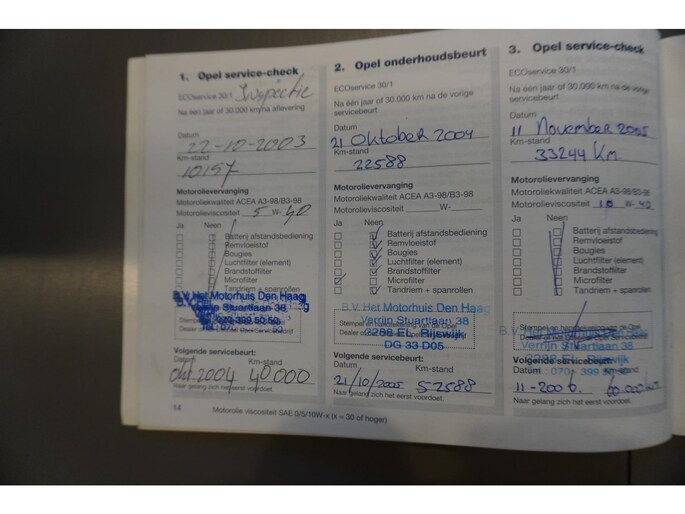 1. Opel service-check
ECOservice 30/1 Inspectie
Na één jaar of 30.000 km na aflevering
Datum
22-10-2003
Km-stand
10157
Motorolievervanging
Motoroliekwaliteit ACEA A3-98/B3-98
Motorolieviscositeit 5 W- 40
Ja Neen
Batterij afstandsbediening
Remvloeistof
Bougies
Luchtfilter (element)
Brandstoffilter
Microfilter
Tandriem + spanrollen
B.V. Het Motorhuis Den Haag
Verrijn Stuartlaan 38
Volgende servicebeurt:
Datum Km-stand
okt. 2004 40.000
Naar gelang zich het eerst voordoet.
14
Motorolie viscositeit SAE 0/5/10W-x (x = 30 of hoger)
2. Opel onderhoudsbeurt
ECOservice 30/1
Na één jaar of 30.000 km na de vorige
servicebeurt
Datum
21 Oktober 2004
Km-stand
22588
Motorolievervanging
Motoroliekwaliteit ACEA A3-98/B3-98
Motorolieviscositeit W-
Ja Neen
Batterij afstandsbediening
Remvloeistof
Bougies
Luchtfilter (element)
Brandstoffilter
Microfilter
Tandriem + spanrollen
B.V. Het Motorhuis Den Haag
Verrijn Stuartlaan 38
2288 EL Rijswijk
DG 33 D05
Volgende servicebeurt:
Datum Km-stand
21/10/2005 52588
Naar gelang zich het eerst voordoet.
3. Opel service-check
ECOservice 30/1
Na één jaar of 30.000 km na de vorige
servicebeurt
Datum
11 November 2005
Km-stand
33244 Km
Motorolievervanging
Motoroliekwaliteit ACEA A3-98/B3-98
Motorolieviscositeit 10 W- 40
Ja Neen
Batterij afstandsbediening
Remvloeistof
Bougies
Luchtfilter (element)
Brandstoffilter
Microfilter
Tandriem + spanrollen
B.V. Het Motorhuis Den Haag
Verrijn Stuartlaan 38
2288 EL Rijswijk
Volgende servicebeurt:
Datum Km-stand
11-2006. 60.000 km
Naar gelang zich het eerst voordoet.